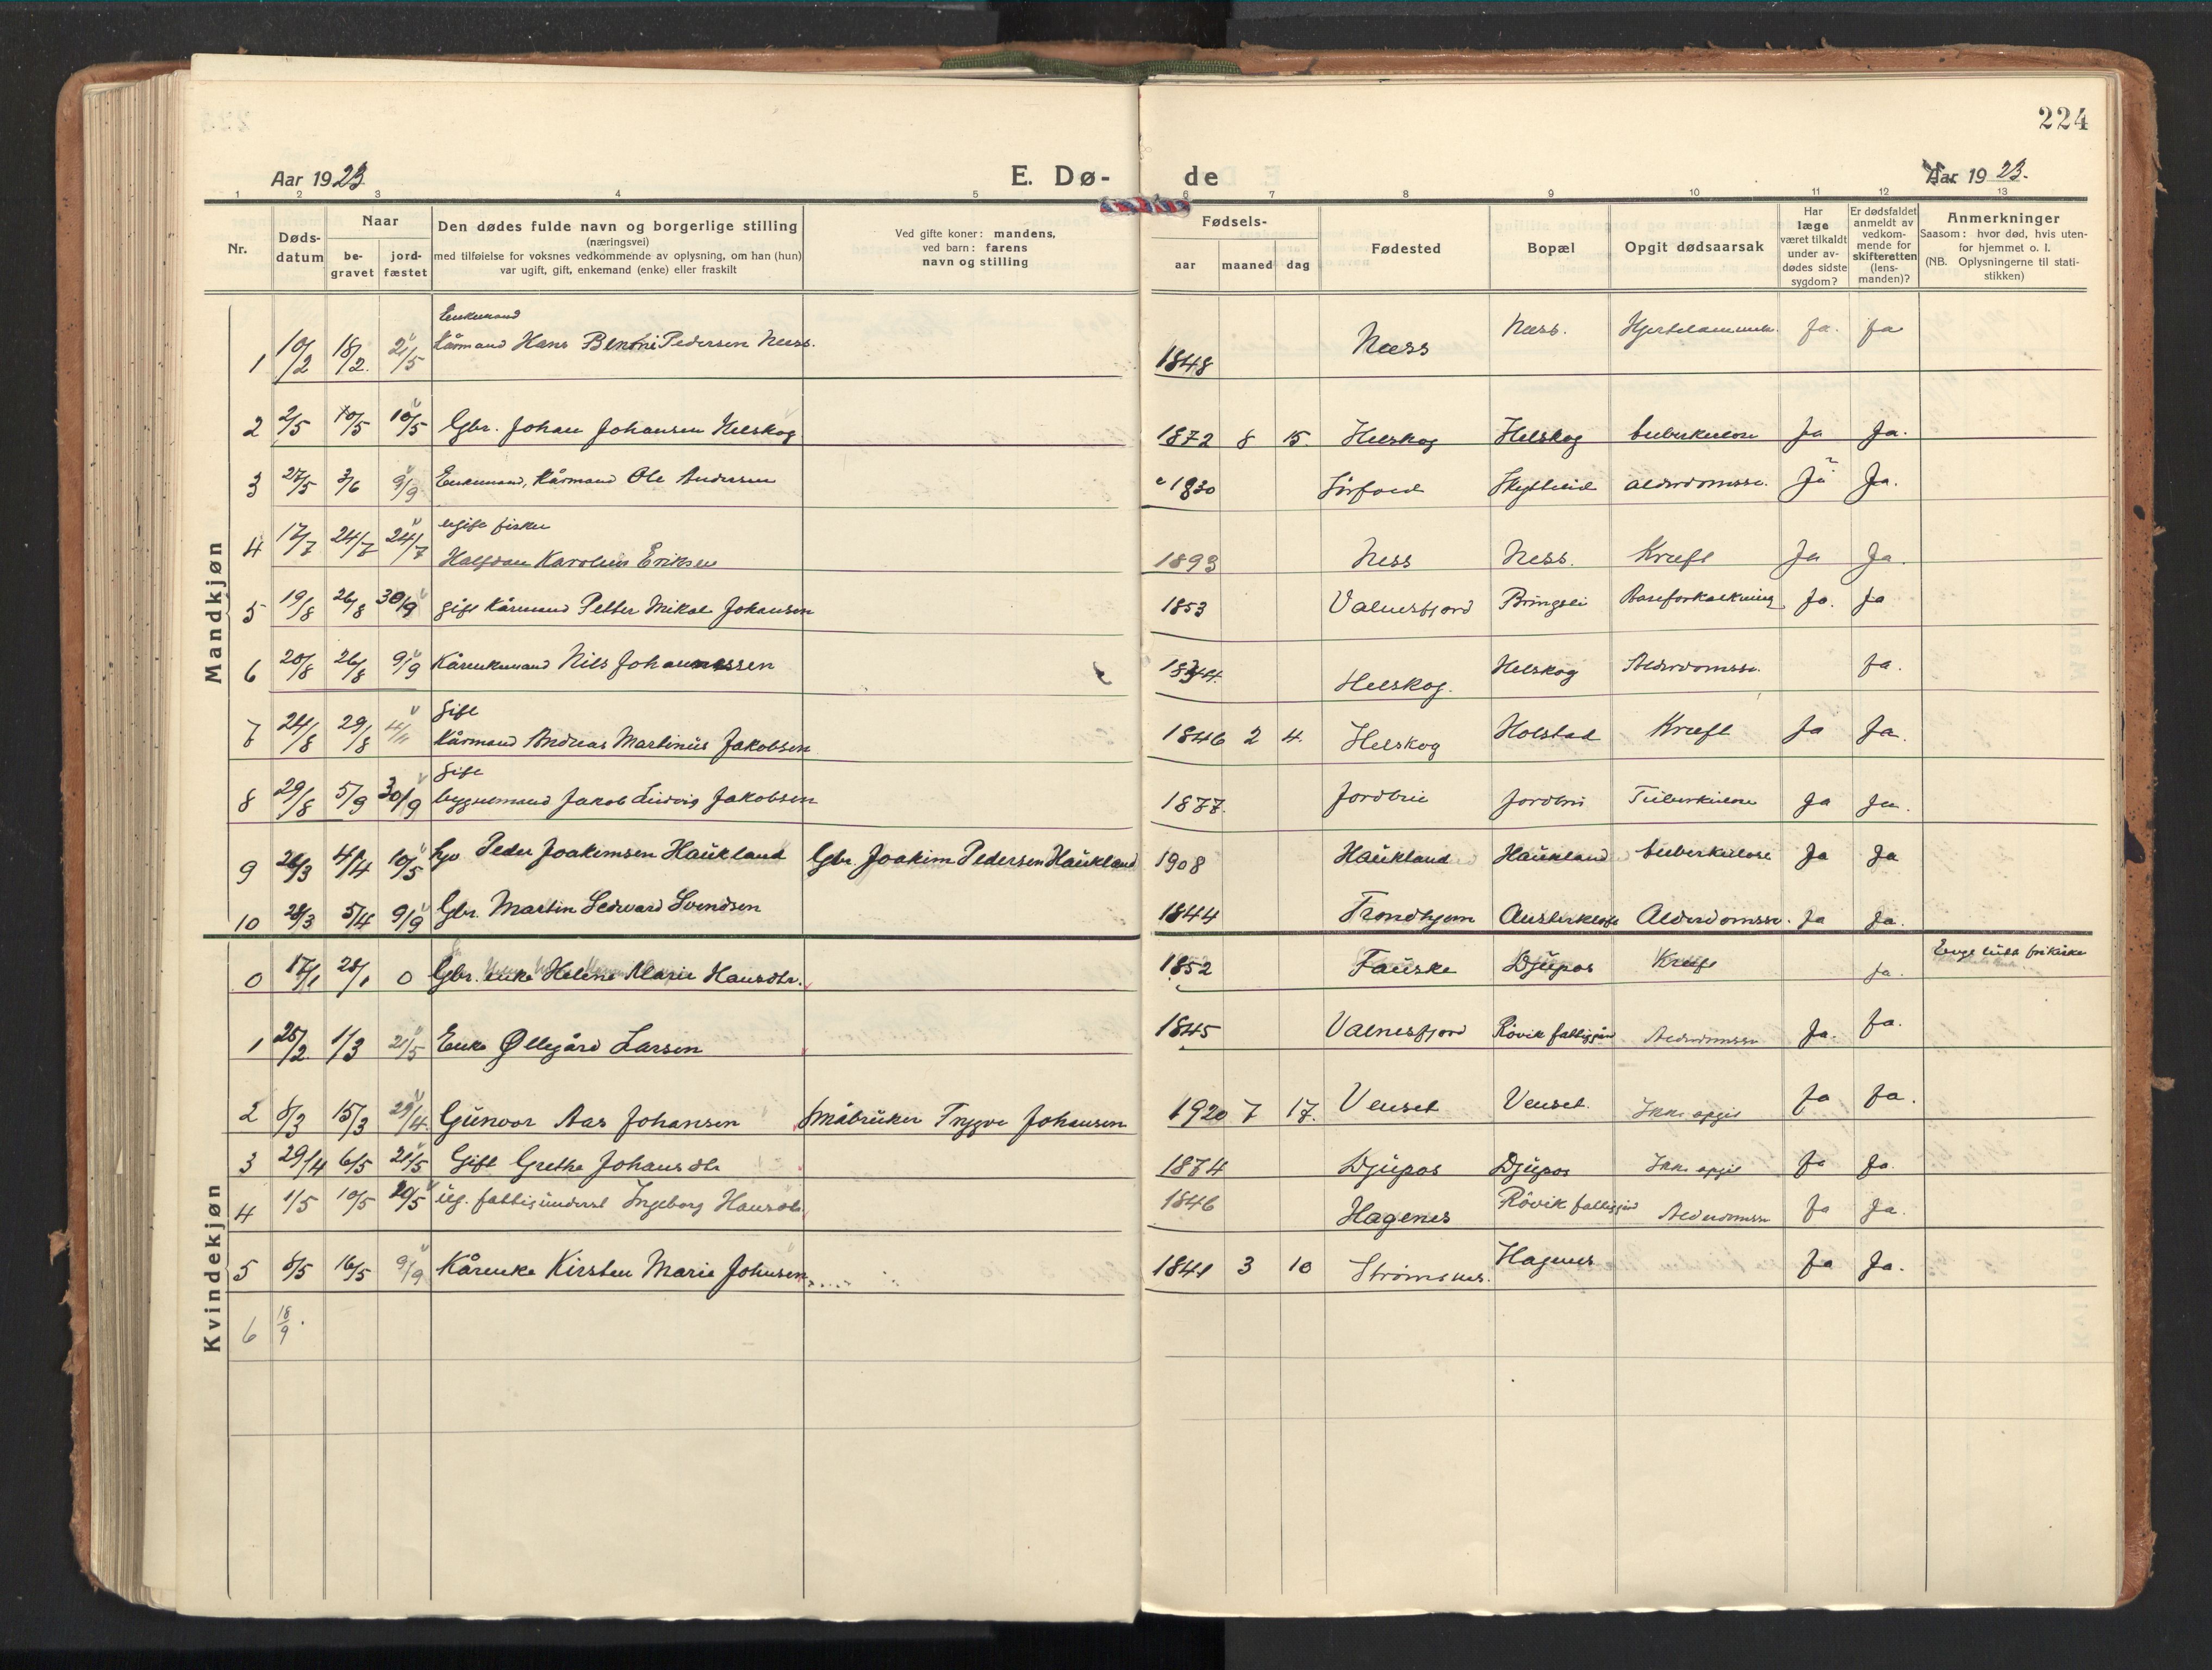 224
Aar 1923
E. Dø-
de
Aar 1923.
1 2 3 4 5 6 7 8 9 10 11 12 13
Nr.
Døds-
datum
Naar
be-
gravet
jord-
fæstet
Den dødes fulde navn og borgerlige stilling
(næringsvei)
med tilføielse for voksnes vedkommende av oplysning, om han (hun)
var ugift, gift, enkemand (enke) eller fraskilt
Ved gifte koner: mandens,
ved barn: farens
navn og stilling
Fødsels-
aar
maaned
dag
Fødested
Bopæl
Opgit dødsaarsak
Har
læge
været tilkaldt
under av-
dødes sidste
sygdom?
Er dødsfaldet
anmeldt av
vedkom-
mende for
skifteretten
(lens-
manden)?
Anmerkninger
Saasom: hvor død, hvis uten-
for hjemmet o. l.
(NB. Oplysningerne til stati-
stikken)
Mandkjøn
Enkemand
1 10/2 18/2. 21/5 Kårmand Hans Benoni Pedersen Næss. 1848 Næss Næss. Ja. Ja
2 2/5 10/5 10/5 Gbr. Johan Johansen Helskog 1872 8 15. Helskog Helskog tuberkulose Ja Ja.
3 27/5 3/6 9/9 Enkemand, Kårmand Ole Andersen 1830 Sørfold alderdomssv. Ja Ja.
ugift fisker
4 17/7 24/7 24/7 Halfdan Karolius Eriksen 1893 Ness Ness. Kræft Ja Ja.
5 19/8 26/8 30/9 gift Kårmand Petter Mikal Johansen 1853 Valnesfjord Bringsli Aareforkalkning Ja. Ja
6 20/8 26/8 9/9 Kårenkemand Nils Johannessen Helskog. Helskog Alderdomssv. Ja.
gift
7 24/8 29/8 4/11 Kårmand Andreas Martinus Jakobsen 1846 2 4. Helskog Holstad Kræft Ja Ja.
gift
8 29/8 5/9 30/9 bygselmand Jakob Ludvig Jakobsen 1877. Jordbru Jordbru Tuberkulose Ja Ja.
9 26/3 4/4 10/5 Peder Joakimsen Haukland Gbr. Joakim Pedersen Haukland 1908 Haukland Haukland tuberkulose Ja Ja
10 28/3 5/4 9/9 Gbr. Martin Sedvard Svendsen 1844 Trondhjem Austerkløft Alderdomssv. Ja Ja.
Kvindekjøn
0 17/1 28/1 0 Gbr. enke Helene Marie Hansdtr. 1852 Fauske Djupos Kræft Ja. Evgl luth frikirke
1 25/2. 1/3 21/5 Enke Øllegård Larsen 1845 Valnesfjord Røvik fattiggård Alderdomssv Ja. Ja.
2 8/3 15/3 29/4. Gunvor Aas Johansen Småbruker Trygve Johansen 1920 7 17. Venset Venset. Ikke opgit Ja Ja.
3 29/4 6/5 21/5 Gift Grethe Johansdtr 1874 Djupos Djupos Ikke opgit Ja Ja.
4 1/5 10/5 20/5 ug. fattigunderst Ingeborg Hansdtr. 1846 Hagenes Røvik fattiggård Alderdomssv Ja Ja.
5 8/5 16/5 9/9 Kårenke Kirsten Marie Johnsen 1841 3 10 Strømsnes. Hagenes Ja Ja.
6 18/9.